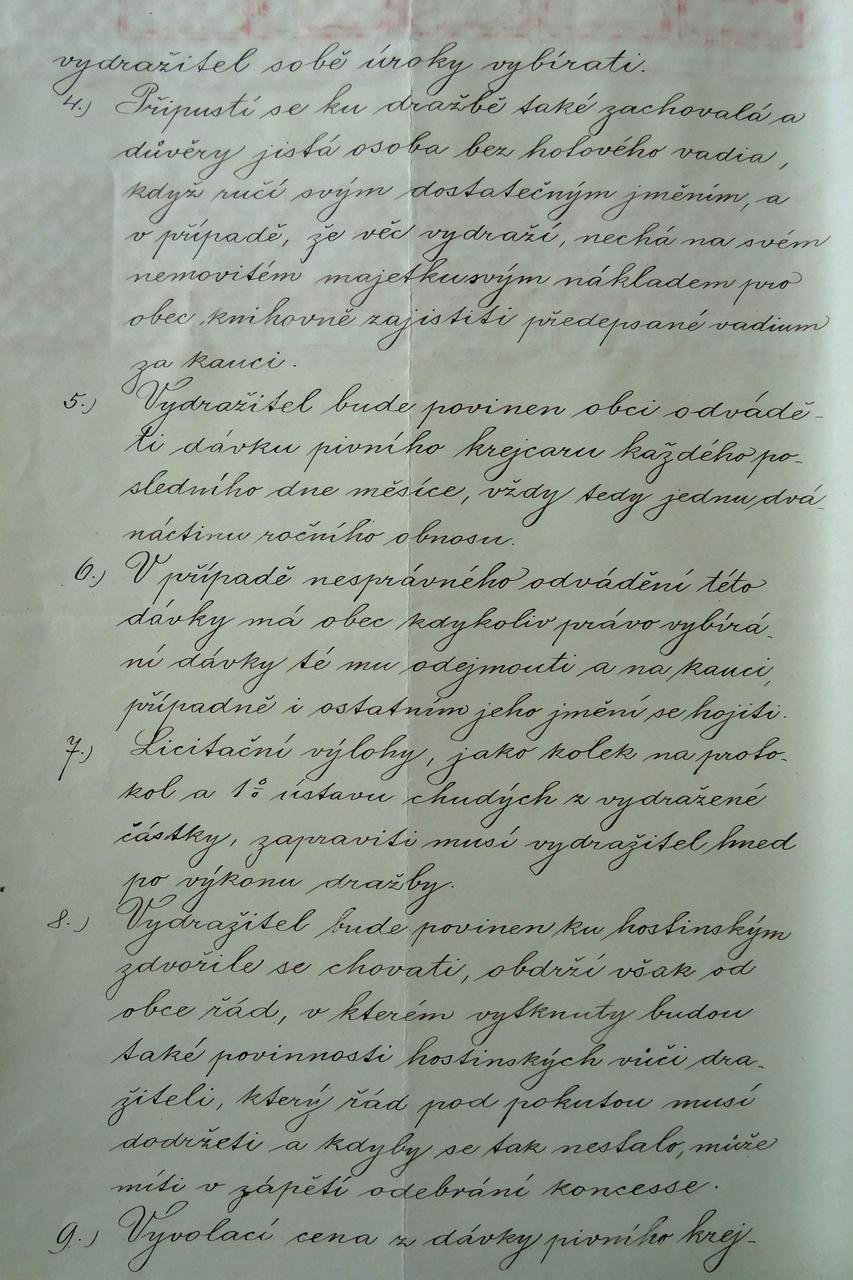 vydražitel sobě úroky vybírati.
4.) Připustí se ku dražbě také zachovalá a
důvěry jistá osoba bez hotového vadia,
když ručí svým dostatečným jměním, a
v případě, že věc vydraží, nechá na svém
nemovitém majetku svým nákladem pro
obec knihovně zajistiti předepsané vadium
za kauci.
5.) Vydražitel bude povinen obci odvádě-
ti dávku pivního krejcaru každého po-
sledního dne měsíce, vždy tedy jednu dvá-
náctinu ročního obnosu.
6.) V případě nesprávného odvádění této
dávky má obec kdykoliv právo vybírá-
ní dávky té mu odejmouti a na kauci,
případně i ostatním jeho jmění se hojiti.
7.) Licitační výlohy, jako kolek na proto-
kol a 1% ústavu chudých z vydražené
částky, zapraviti musí vydražitel hned
po výkonu dražby.
8.) Vydražitel bude povinen ku hostinským
zdvořile se chovati, obdrží však od
obce řád, v kterém vytknuty budou
také povinnosti hostinských vůči dra-
žiteli, který řád pod pokutou musí
dodržeti a kdyby se tak nestalo, může
míti v zápětí odebrání koncesse.
9.) Vyvolací cena z dávky pivního krej-